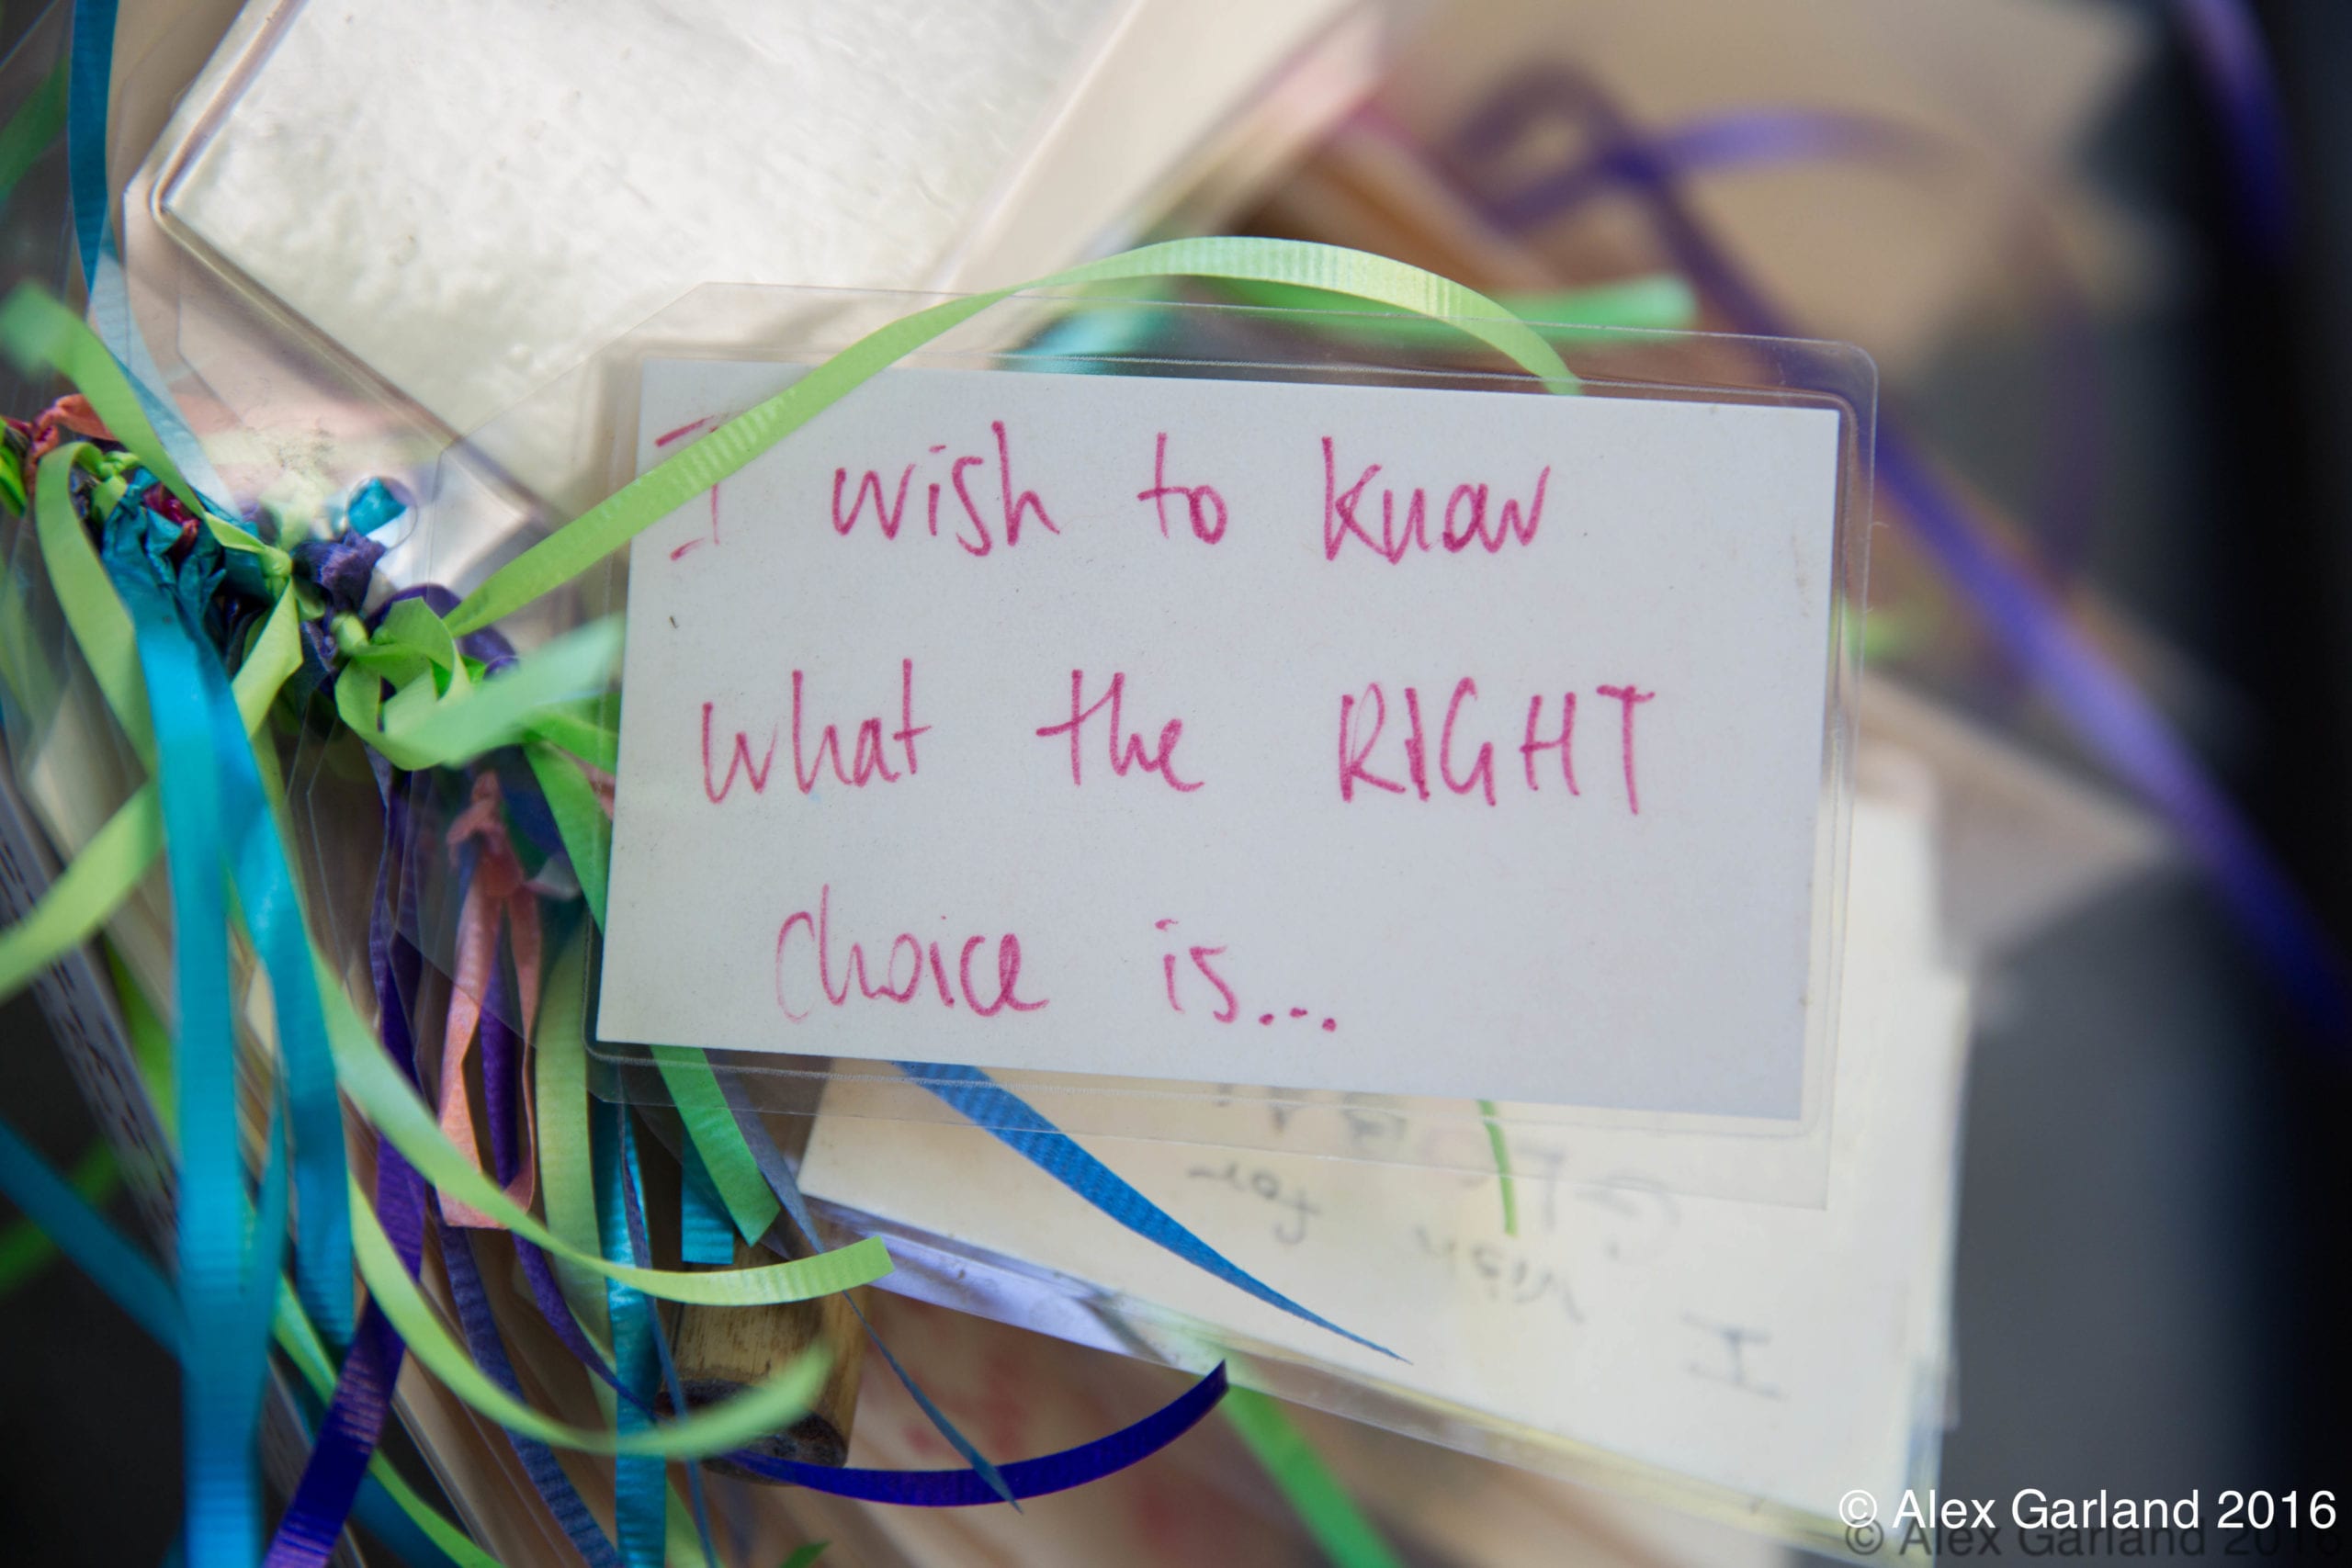 I wish to know
what the RIGHT
choice is...
I
wish for
© Alex Garland 2016